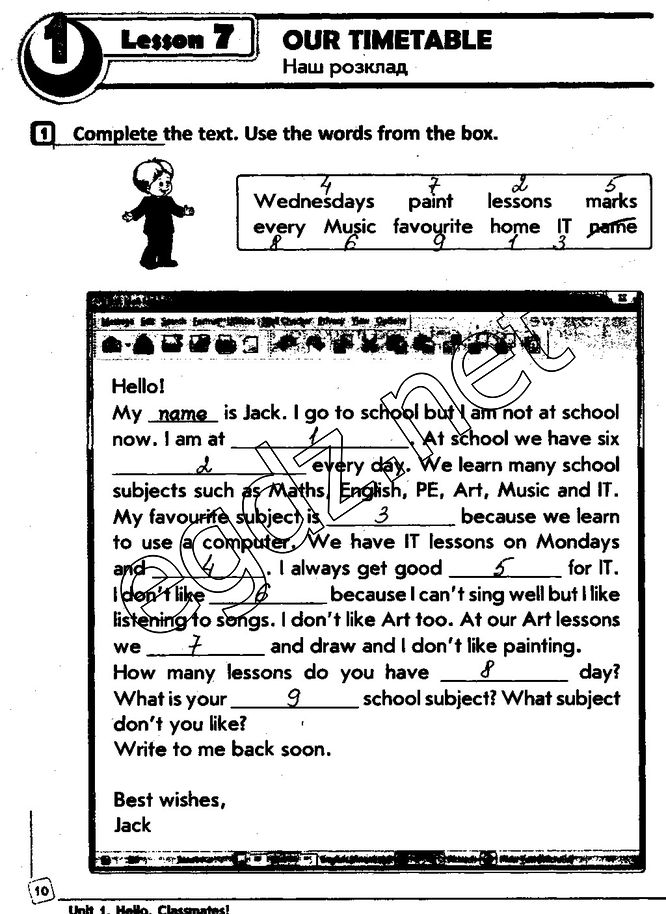 1 Lesson 7 OUR TIMETABLE
Наш розклад
1 Complete the text. Use the words from the box.
4 7 2 5
Wednesdays paint lessons marks
every Music favourite home IT name
8 6 9 1 3
Message Edit Search View Options
Hello!
My name is Jack. I go to school but I am not at school
now. I am at 1. At school we have six
2 every day. We learn many school
subjects such as Maths, English, PE, Art, Music and IT.
My favourite subject is 3 because we learn
to use a computer. We have IT lessons on Mondays
and 4. I always get good 5 for IT.
I don't like 6 because I can't sing well but I like
listening to songs. I don't like Art too. At our Art lessons
we 7 and draw and I don't like painting.
How many lessons do you have 8 day?
What is your 9 school subject? What subject
don't you like?
Write to me back soon.
Best wishes,
Jack
egdz.net
10
Unit 1. Hello, Classmates!